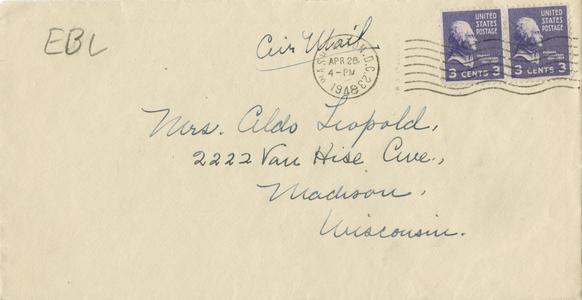 EBL
Air Mail
WASHINGTON, D.C. 23
APR 26
4 - PM
1948
UNITED STATES POSTAGE
3 CENTS 3
UNITED STATES POSTAGE
3 CENTS 3
Mrs. Aldo Leopold,
2222 Van Hise Ave.,
Madison,
Wisconsin.